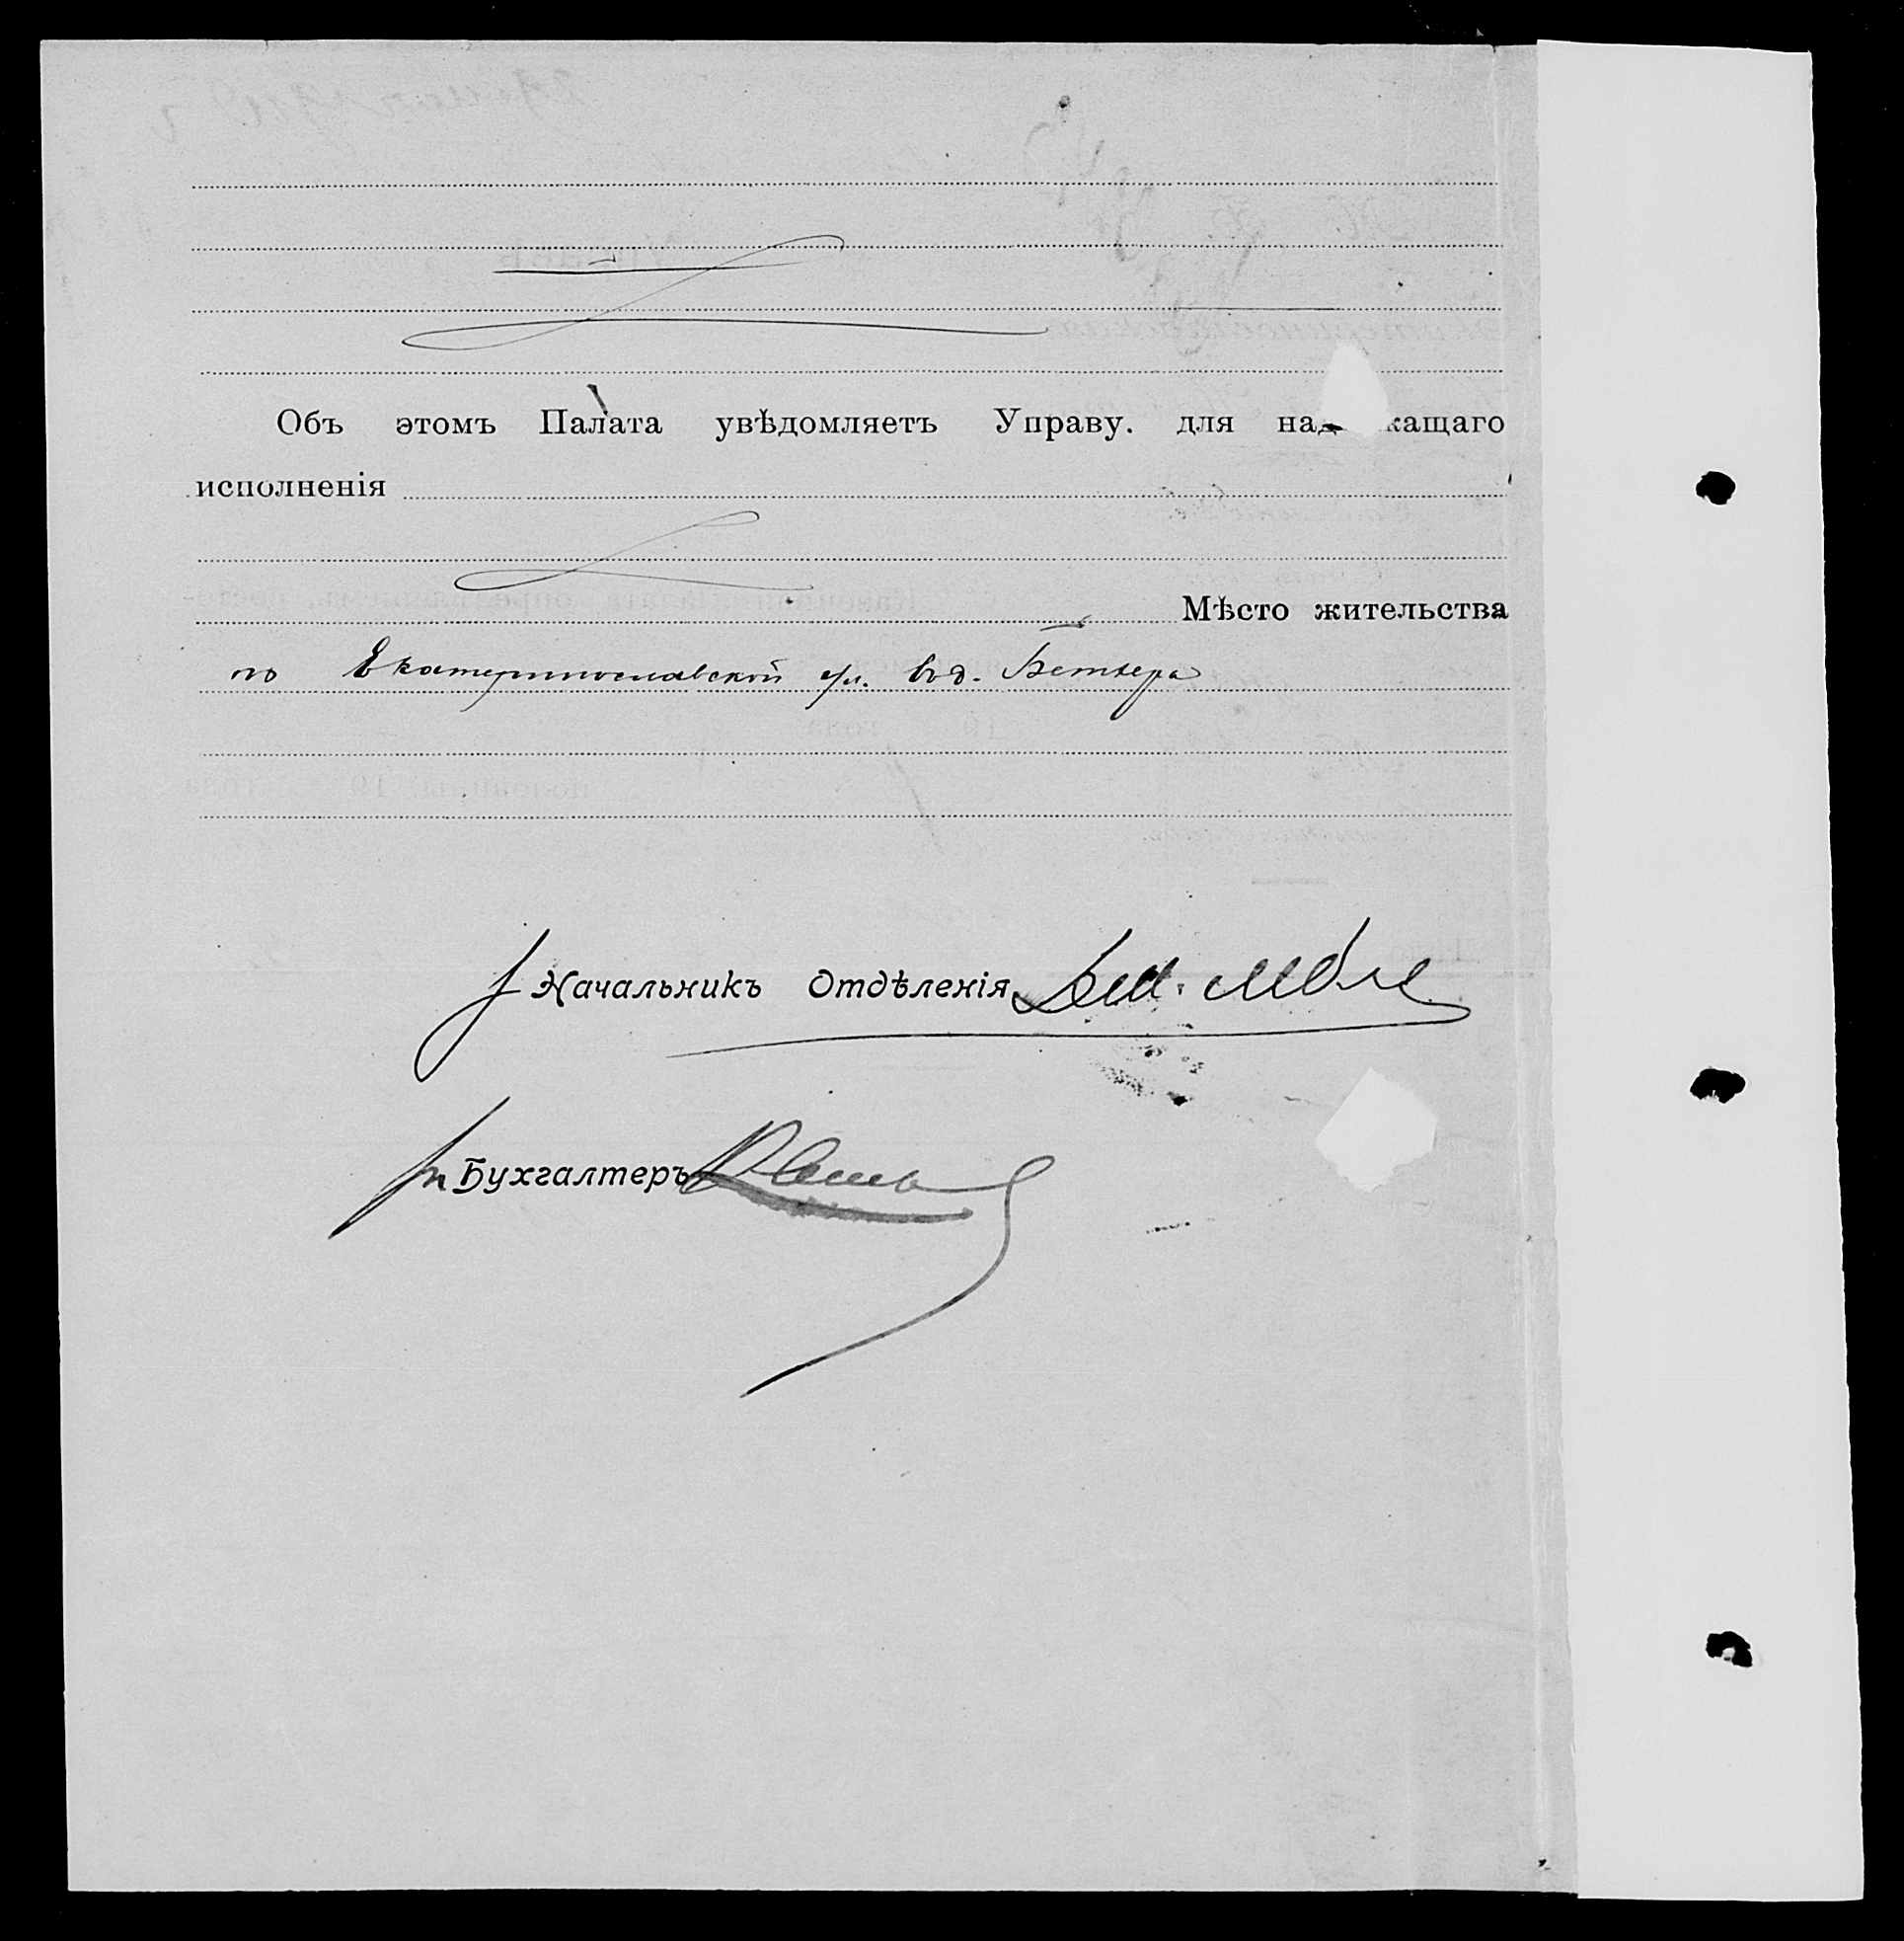 Объ этомъ Палата увѣдомляетъ Управу. для над кащаго
исполненія
Мѣсто жительства
по Екатеринославской ул. в д. Беткера
Начальникъ Отдѣленія
Бухгалтеръ